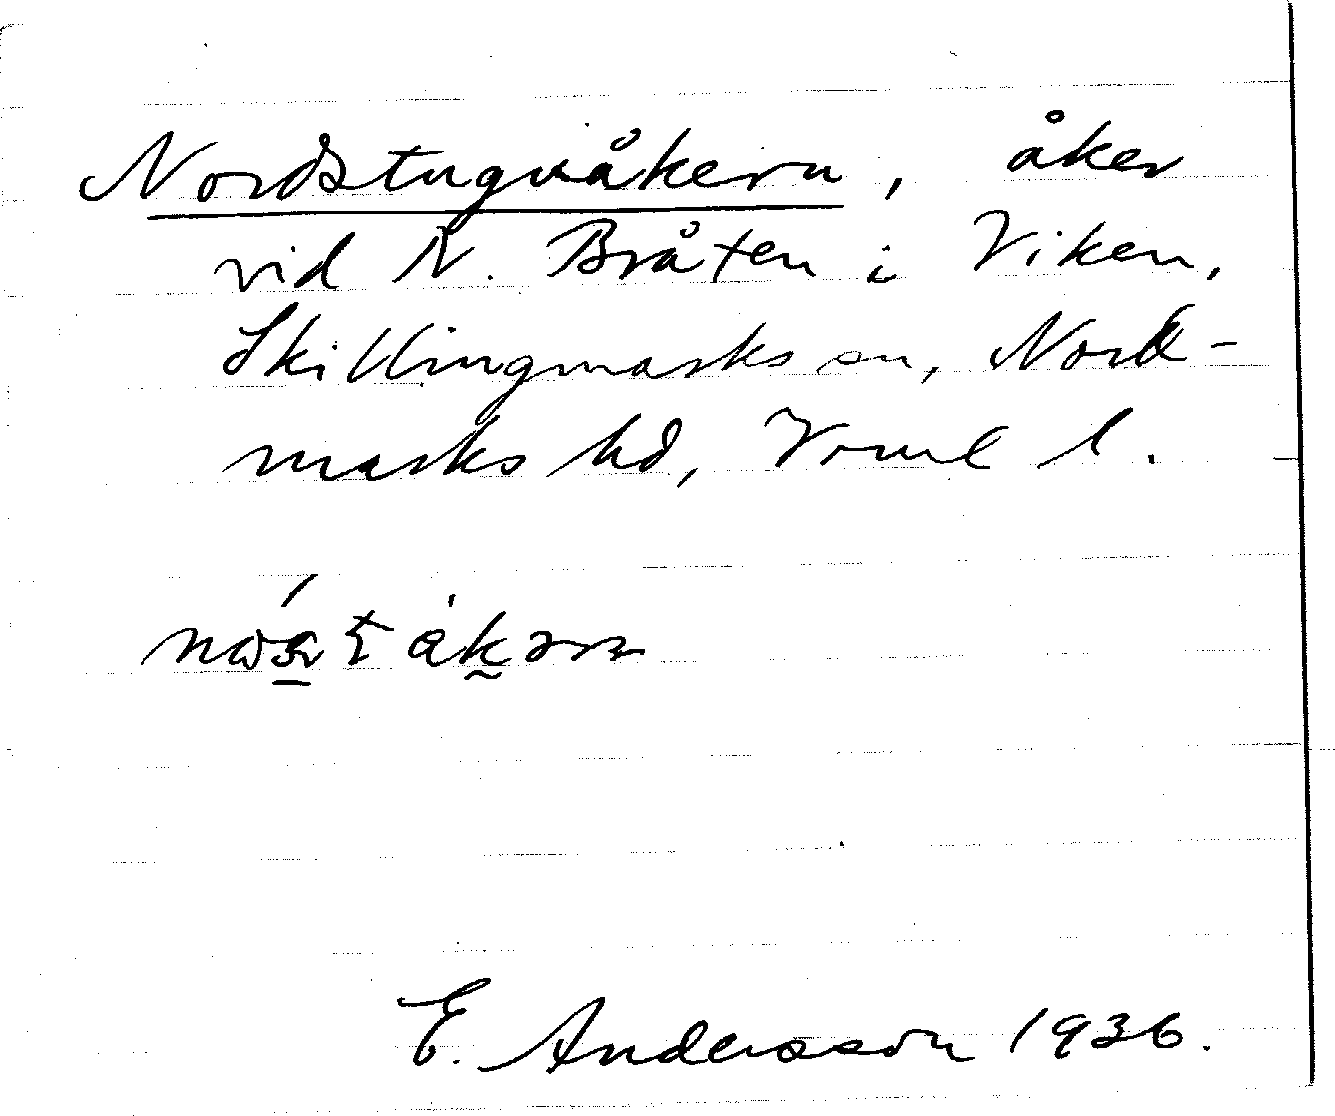 Nordstuguåkern, åker
vid N. Bråten i Viken,
Skillingmarks sn, Nord-
marks hd, Vrml l.
E. Andersson 1936.